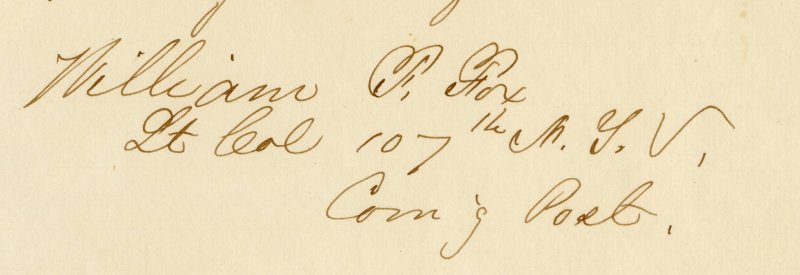 William F. Fox
Lt Col 107th N. Y. V.
Com'g Post.